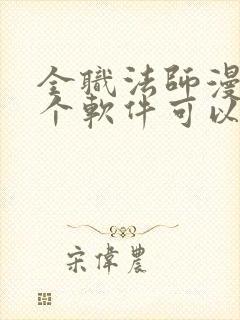 全職法師漫
个軟件可以
宋偉農